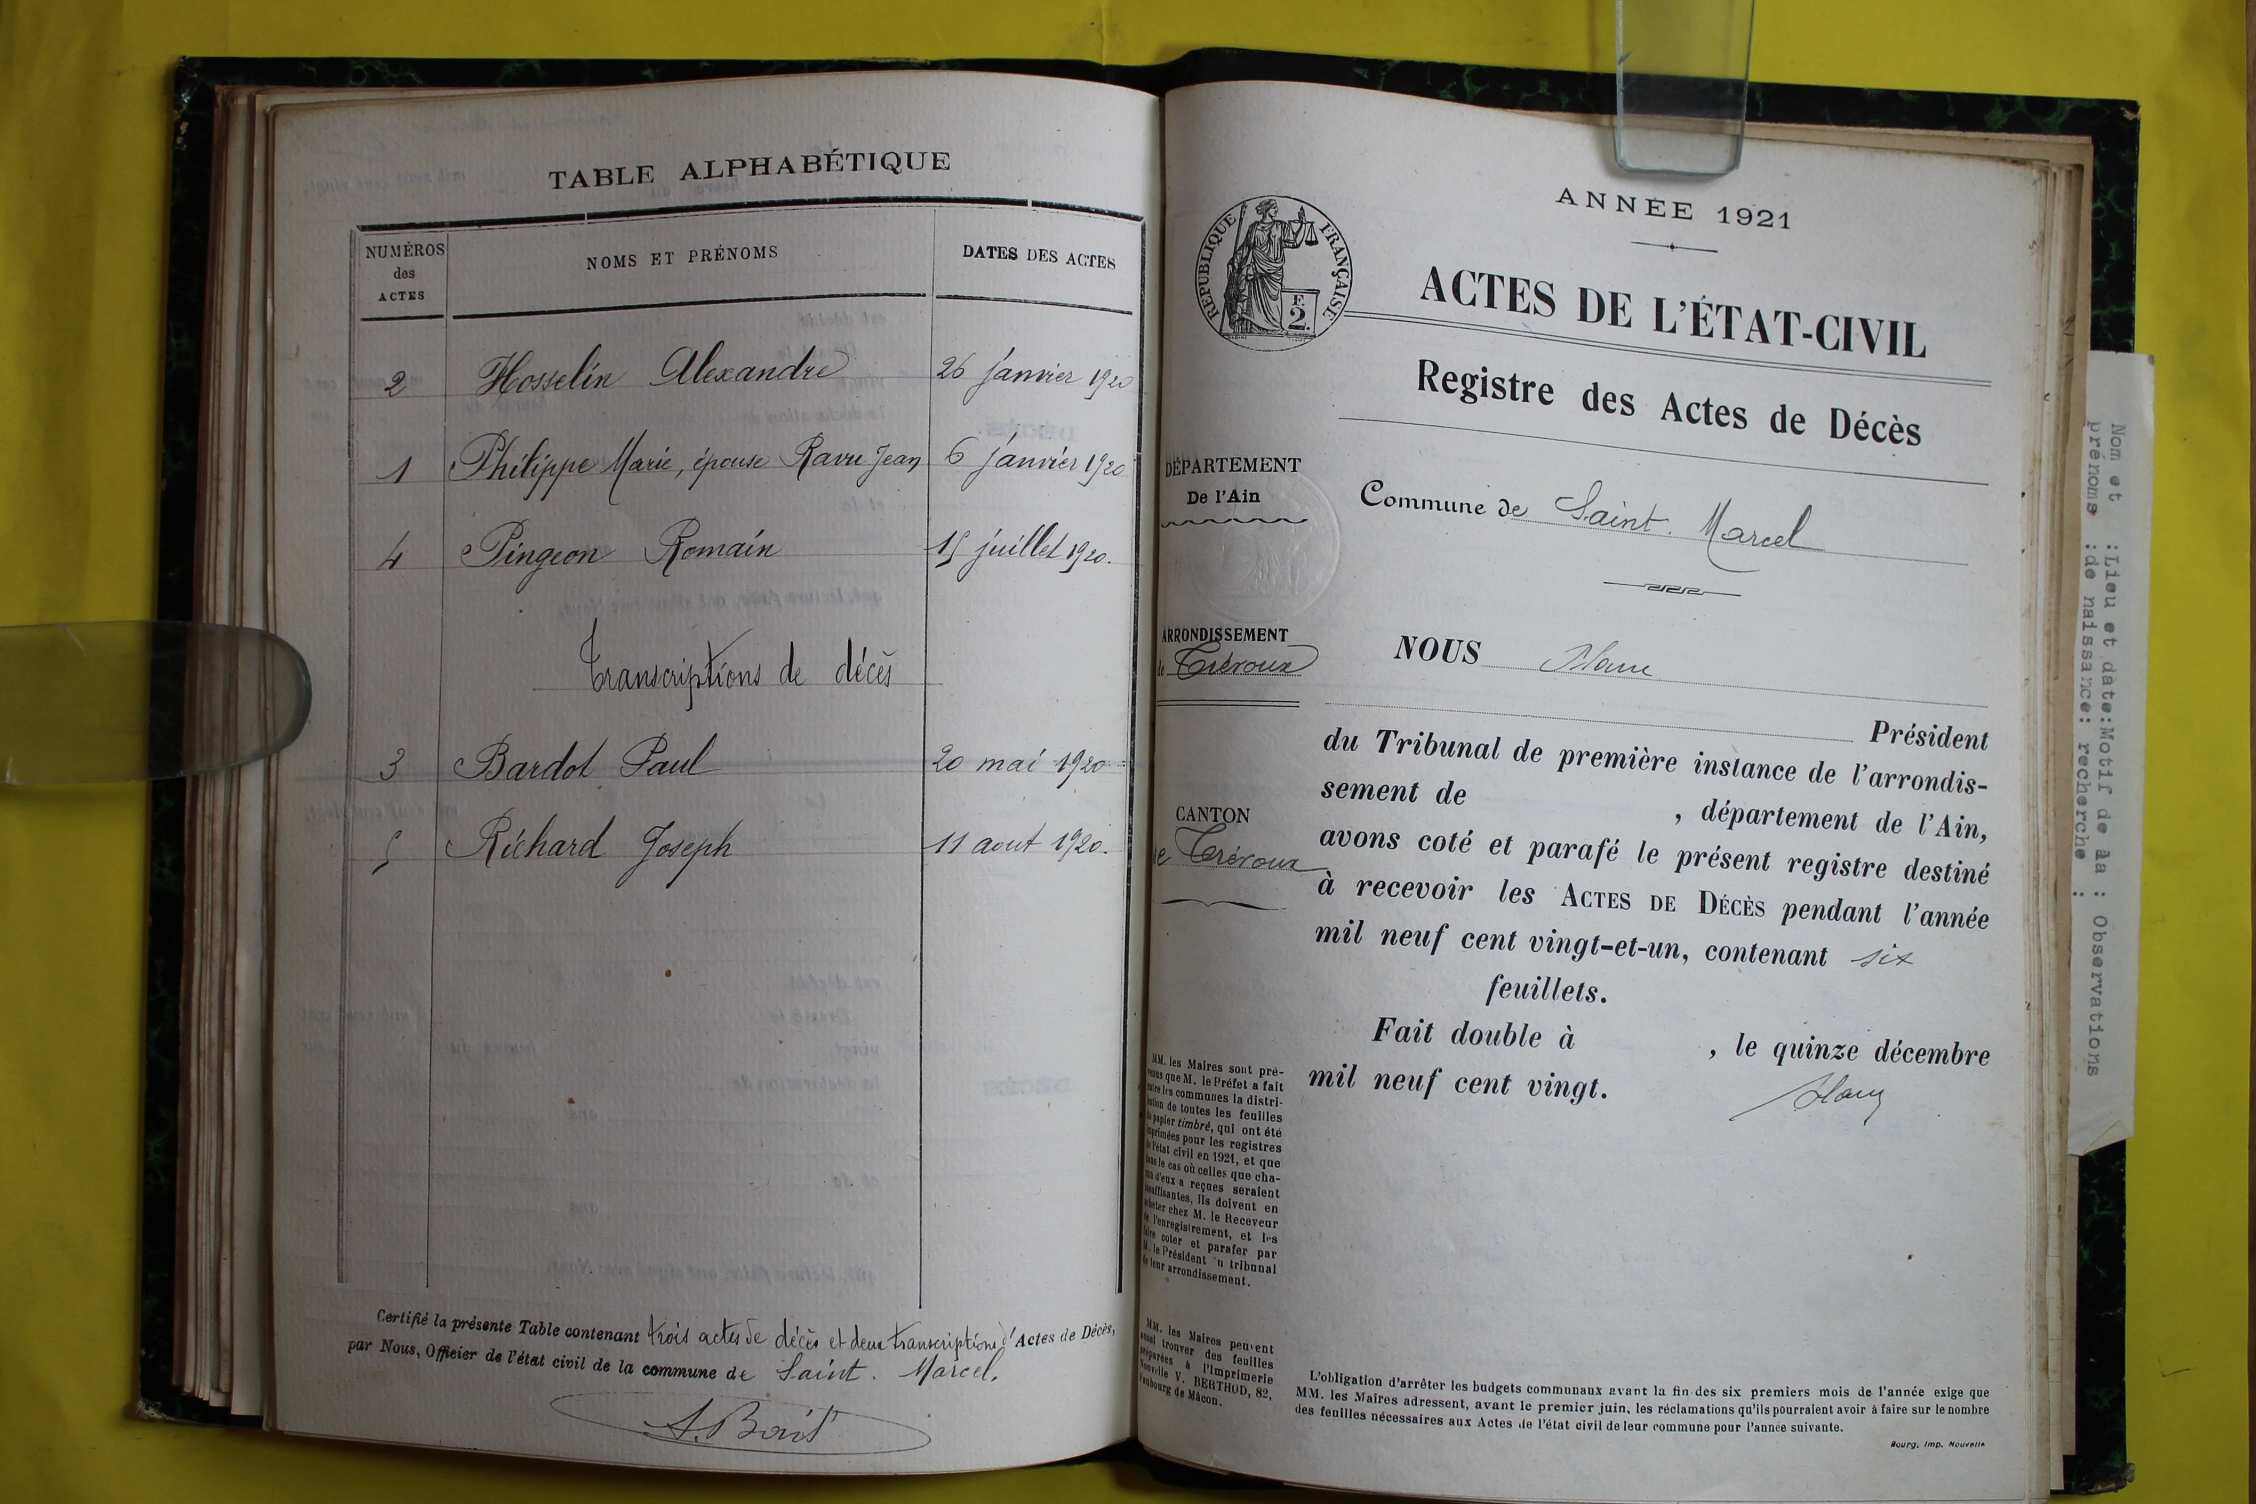 TABLE ALPHABÉTIQUE
NUMÉROS
des
ACTES
NOMS ET PRÉNOMS
DATES DES ACTES
2 Hosselin Alexandre 26 janvier 1920
1 Philippe Marie, épouse Ravu Jean 6 janvier 1920
4 Pingeon Romain 15 juillet 1920.
Transcriptions de décès
3 Bardot Paul 20 mai 1920
5 Richard Joseph 11 aout 1920.
Certifié la présente Table contenant trois actes de décès et deux transcriptions d'Actes de Décès,
par Nous, Officier de l'état civil de la commune de Saint. Marcel.
ANNÉE 1921
RÉPUBLIQUE FRANÇAISE
F.
2.
ACTES DE L'ÉTAT-CIVIL
Registre des Actes de Décès
DÉPARTEMENT
De l'Ain
Commune de Saint. Marcel
ARRONDISSEMENT
de Trévoux
CANTON
de Trévoux
NOUS
Président
du Tribunal de première instance de l'arrondis-
sement de , département de l'Ain,
avons coté et parafé le présent registre destiné
à recevoir les ACTES DE DÉCÈS pendant l'année
mil neuf cent vingt-et-un, contenant six
feuillets.
Fait double à , le quinze décembre
mil neuf cent vingt.
MM. les Maires sont pré-
venus que M. le Préfet a fait
entre les communes la distri-
bution de toutes les feuilles
du papier timbré, qui ont été
imprimées pour les registres
de l'état civil en 1921, et que
dans le cas où celles que cha-
cun d'eux a reçues seraient
insuffisantes, ils doivent en
acheter chez M. le Receveur
de l'enregistrement, et les
faire coter et parafer par
M. le Président du tribunal
de leur arrondissement.
MM. les Maires peuvent
aussi trouver des feuilles
préparées à l'Imprimerie
Nouvelle V. BERTHOD, 82,
Faubourg de Mâcon.
L'obligation d'arrêter les budgets communaux avant la fin des six premiers mois de l'année exige que
MM. les Maires adressent, avant le premier juin, les réclamations qu'ils pourraient avoir à faire sur le nombre
des feuilles nécessaires aux Actes de l'état civil de leur commune pour l'année suivante.
Bourg, Imp. Nouvelle
Nom et :Lieu et date:Motif de la : Observations
prénoms :de naissance: recherche :